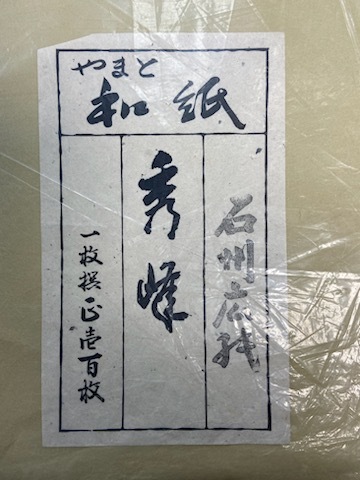 やまと
和紙
石州
秀峰
一枚撰正壱百枚